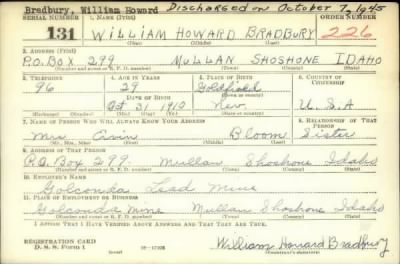 Bradbury, William Howard Discharged on October 7, 1945
SERIAL NUMBER 1. NAME (Print) ORDER NUMBER
131 WILLIAM HOWARD BRADBURY 226
(First) (Middle) (Last)
2. ADDRESS (Print)
P.O. Box 299 MULLAN SHOSHONE IDAHO
(Number and street or R. F. D. number) (Town) (County) (State)
3. TELEPHONE 4. AGE IN YEARS 5. PLACE OF BIRTH 6. COUNTRY OF CITIZENSHIP
96 29 Goldfield
DATE OF BIRTH
Oct 31 1910 Nev. U.S.A
7. NAME OF PERSON WHO WILL ALWAYS KNOW YOUR ADDRESS 8. RELATIONSHIP OF THAT PERSON
Mrs Bloom Sister
(Mr., Mrs., Miss) (First) (Middle) (Last)
9. ADDRESS OF THAT PERSON
P.O. Box 299. Mullan Shoshone Idaho
(Number and street or R. F. D. number) (Town) (County) (State)
10. EMPLOYER'S NAME
Golconda Lead Mine
11. PLACE OF EMPLOYMENT OR BUSINESS
Golconda Mine Mullan Shoshone Idaho
(Number and street or R. F. D. number) (Town) (County) (State)
I AFFIRM THAT I HAVE VERIFIED ABOVE ANSWERS AND THAT THEY ARE TRUE.
REGISTRATION CARD
D. S. S. Form 1 William Howard Bradbury
(Registrant's signature)